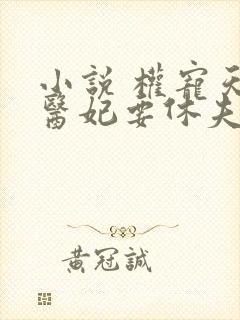 小說 權寵天
醫妃要休夫
黃冠誠